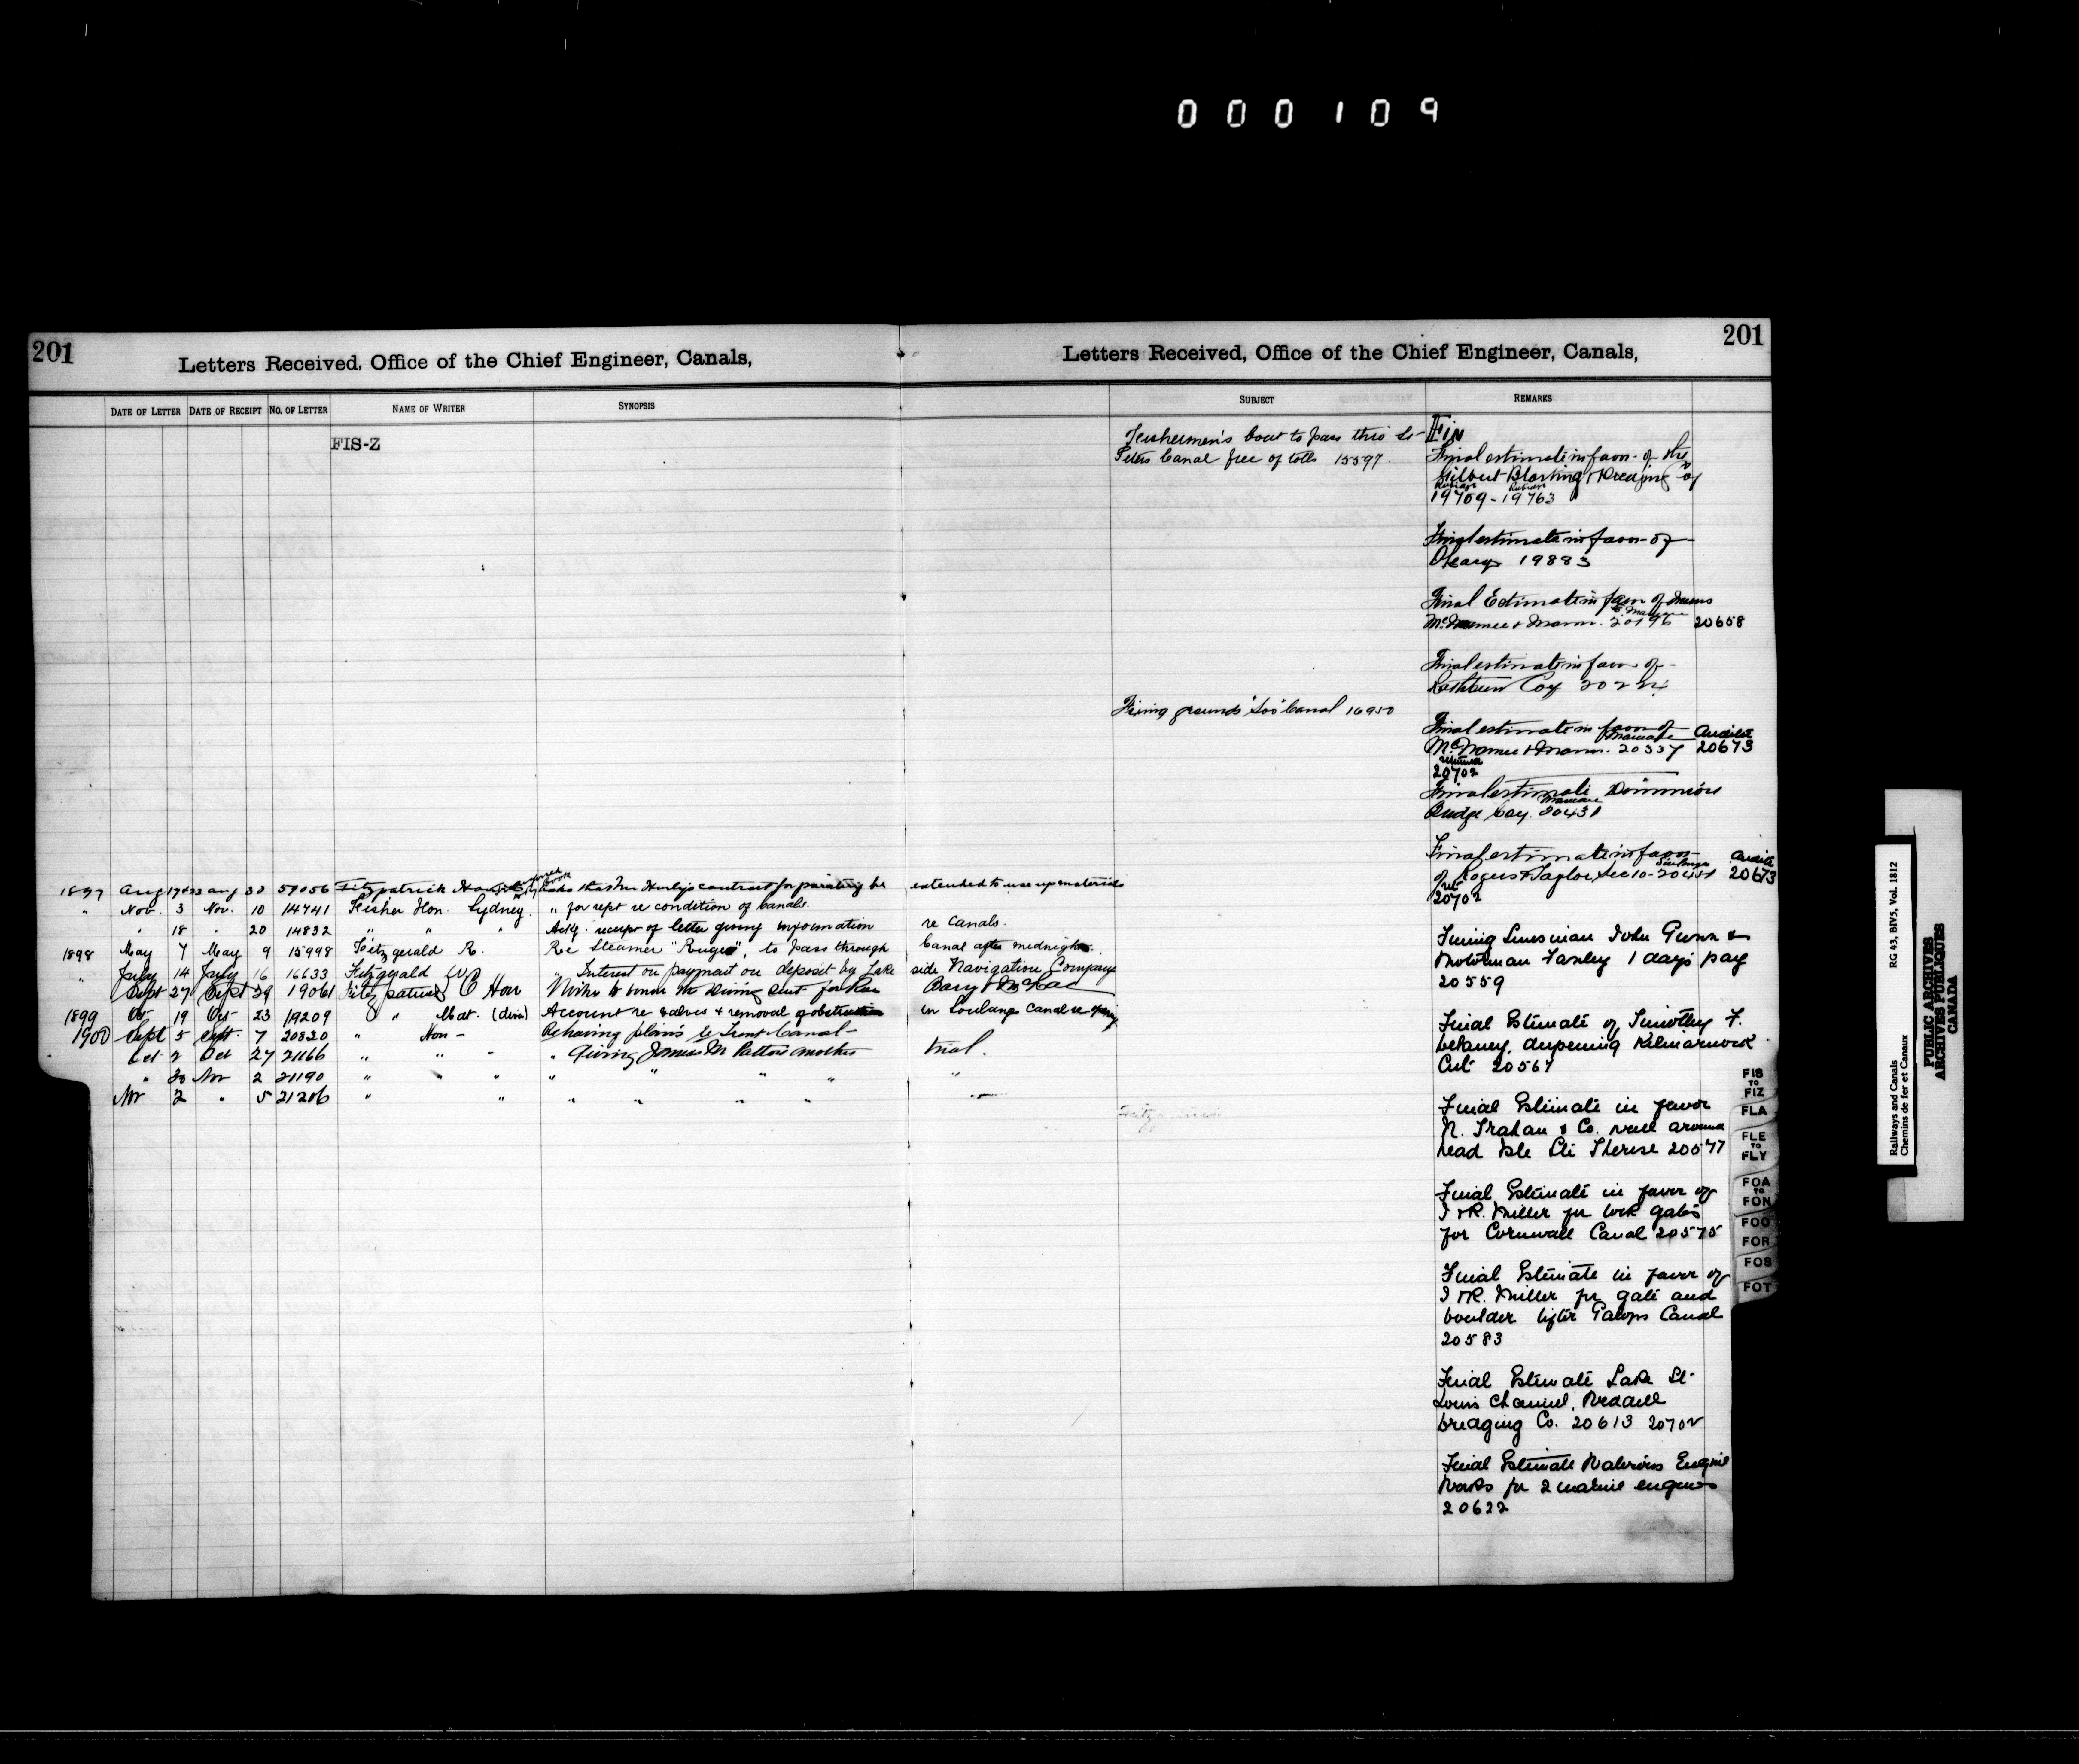 000109
201
Letters Received, Office of the Chief Engineer, Canals,
DATE OF LETTER DATE OF RECEIPT NO. OF LETTER NAME OF WRITER SYNOPSIS
FIS-Z
1897 Aug 17+23 Aug 30 57056 Fitzpatrick Asks that Mr contract for painting be extended to use up materials
" Nov. 3 Nov. 10 14741 Fisher Hon. Sydney " for rept re condition of Canals.
" 18 " 20 14832 " " " Ackg. receipt of letter giving information re Canals.
1898 May 7 May 9 15998 Fitzgerald R. Re Steamer to pass through Canal after midnight.
" July 14 July 16 16633 Fitzgerald W " Interest on payment on deposit by Lake side Navigation Company
Sept 27 Sept 29 19061 Fitzpatrick C Hon
1899 Oct 19 Oct 23 19209 " " (div) Account re valves & removal of obstruction in Soulanges Canal re
1900 Sept 5 Sept 7 20820 " Hon - Re having plans Trent Canal
Oct 2 Oct 27 21166 " " " " Giving James M Patton another trial.
" 30 Nov 2 21190 " " " " " " " "
Nov 2 " 5 21206 " " " " " "
201
Letters Received, Office of the Chief Engineer, Canals,
SUBJECT REMARKS
Fishermen's boat to pass thro St-
Peters Canal free of tolls 15597
Soo Canal 16950
Fin
Final estimate in favor of the
Gilbert Blasting & Dredging Coy
19709 - 19763
Final estimate in favor of
O'Leary 19883
Final Estimate in favor of Messrs
McNamee & Mann. 20196 20658
Final estimate in favor of
Rathbun Coy
Final estimate in favor of
McNamee & Mann. 20337 20673
20702
Final estimate Dominion
Bridge Coy. 20431
Final estimate in favor
of Rogers & Taylor Sec 10 - 20673
20702
John Gunn &
1 days pay
20559
Final Estimate of Timothy F.
Delaney, deepening Kilmarnock
Cut 20567
Final Estimate in favor
N. Trahan & Co. wall around
head Isle Ste Therese 20577
Final Estimate in favor of
J & R. Miller for lock gates
for Cornwall Canal 20575
Final Estimate in favor of
J & R. Miller for gate and
boulder lifter Galops Canal
20583
Final Estimate Lake St-
Louis Channel, Weddell
Dredging Co. 20613 20702
Final Estimate Waterous Engine
Works for 2 marine engines
20622
FIS
TO
FIZ
FLA
FLE
TO
FLY
FOA
TO
FON
FOO
FOR
FOS
FOT
Railways and Canals
Chemins de fer et Canaux
RG 43, BIV5, Vol. 1812
PUBLIC ARCHIVES
ARCHIVES PUBLIQUES
CANADA